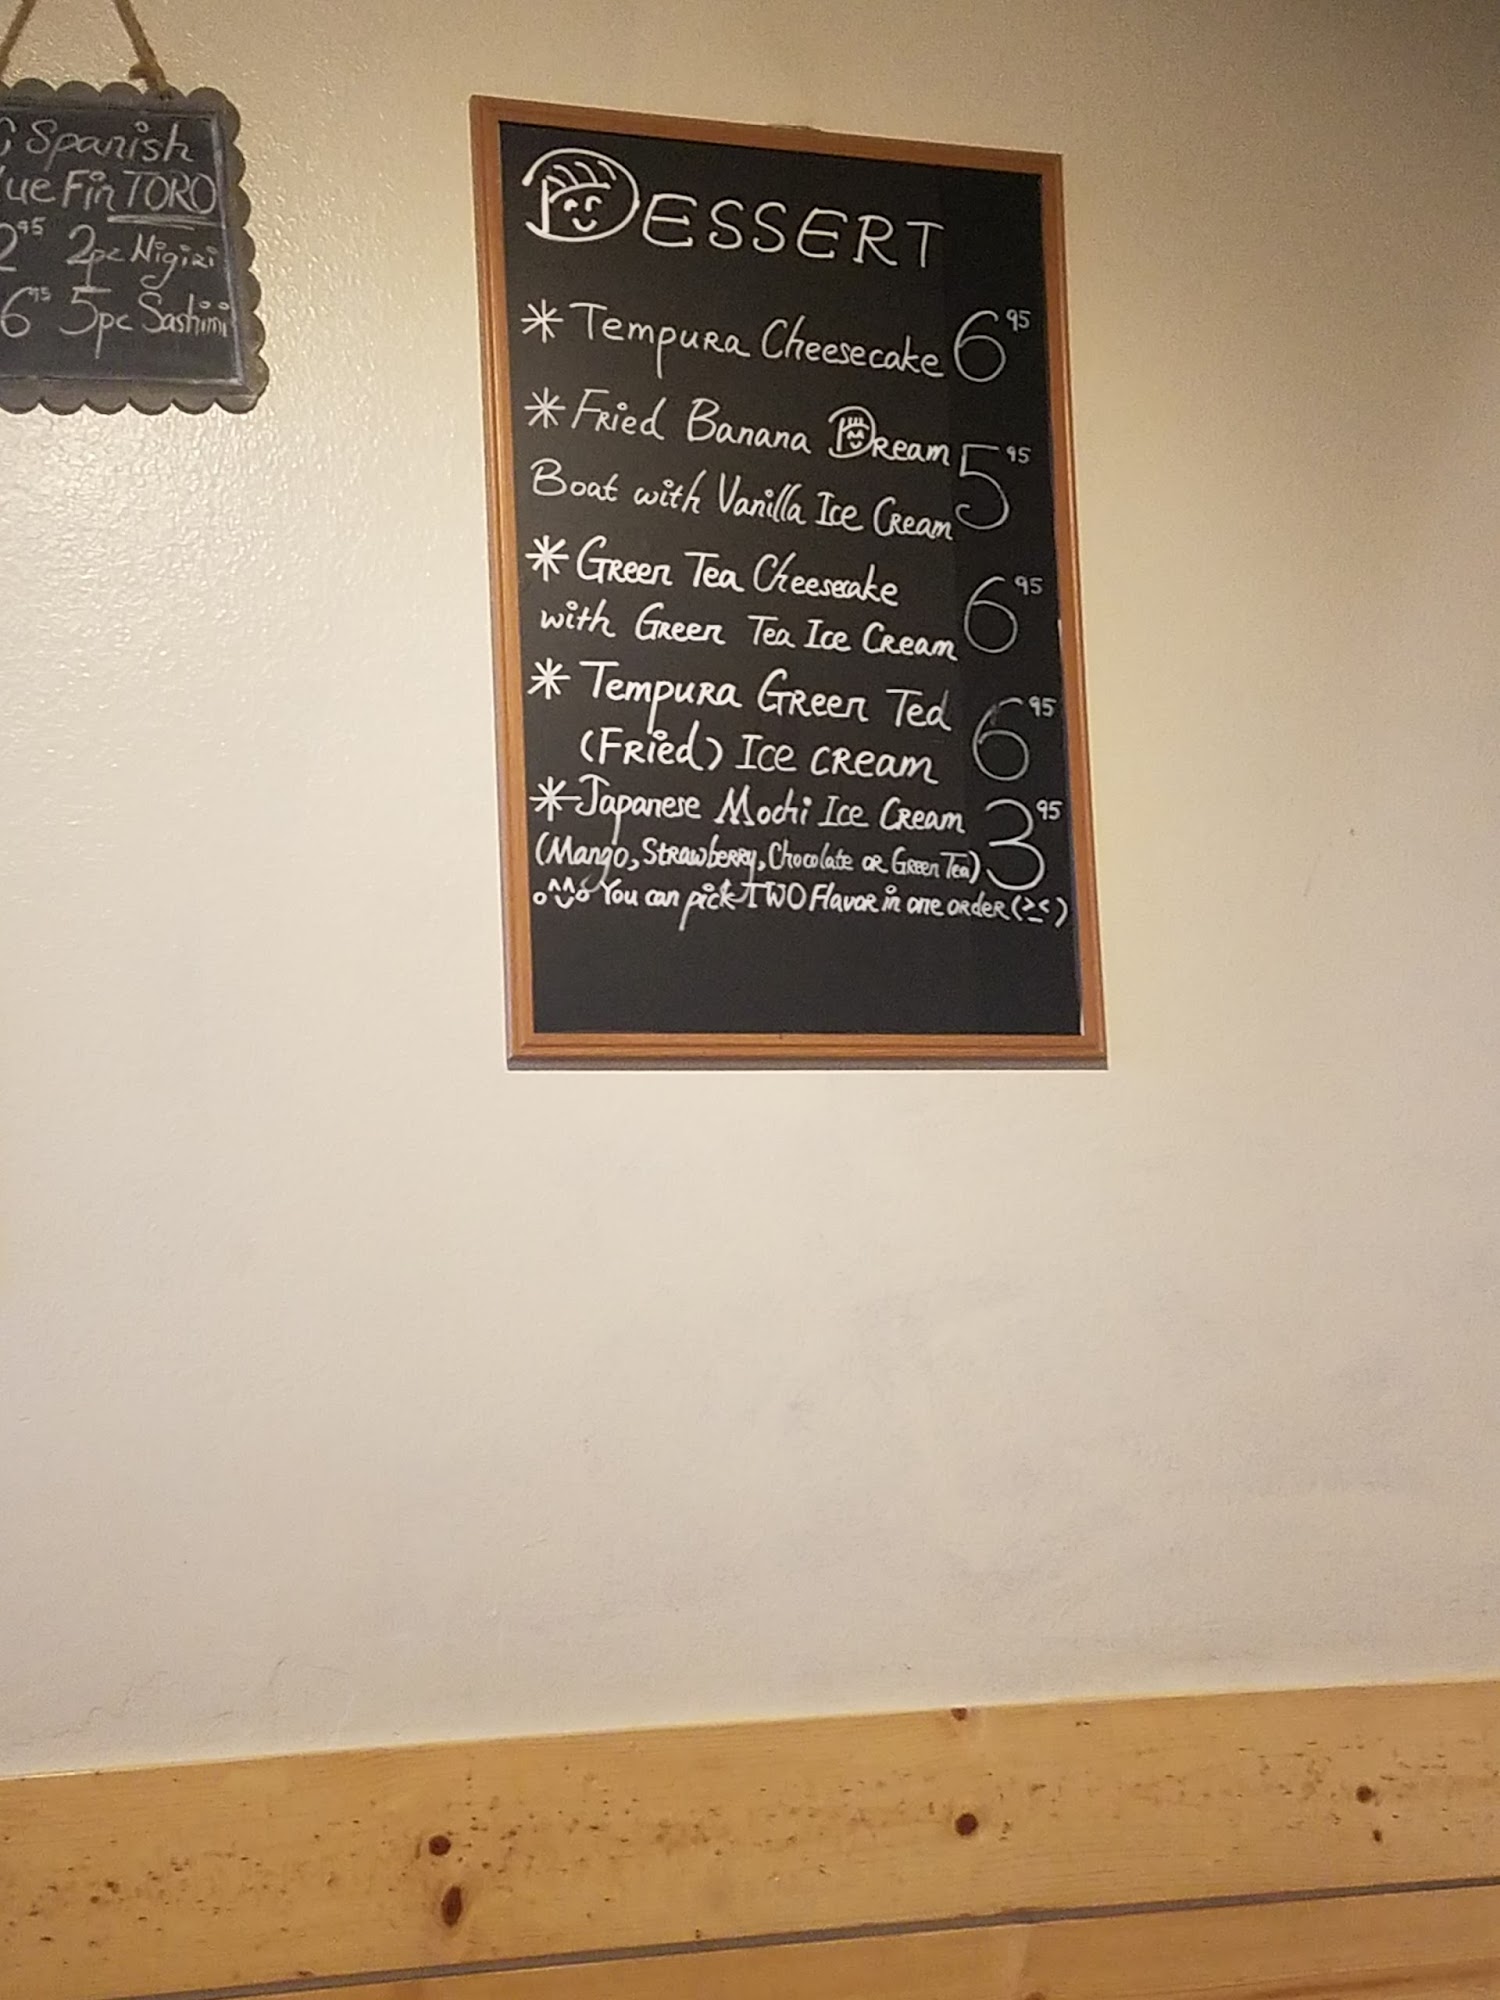 Spanish
Fin TORO
95 2pc Nigiri
6 95 5pc Sashimi
DESSERT
* Tempura Cheesecake 6 95
* Fried Banana Dream 5 95
Boat with Vanilla Ice Cream
* Green Tea Cheesecake 6 95
with Green Tea Ice Cream
* Tempura Green Tea 6 95
(Fried) Ice cream
* Japanese Mochi Ice Cream 3 95
(Mango, Strawberry, Chocolate or Green Tea)
You can pick TWO Flavor in one order (>_<)